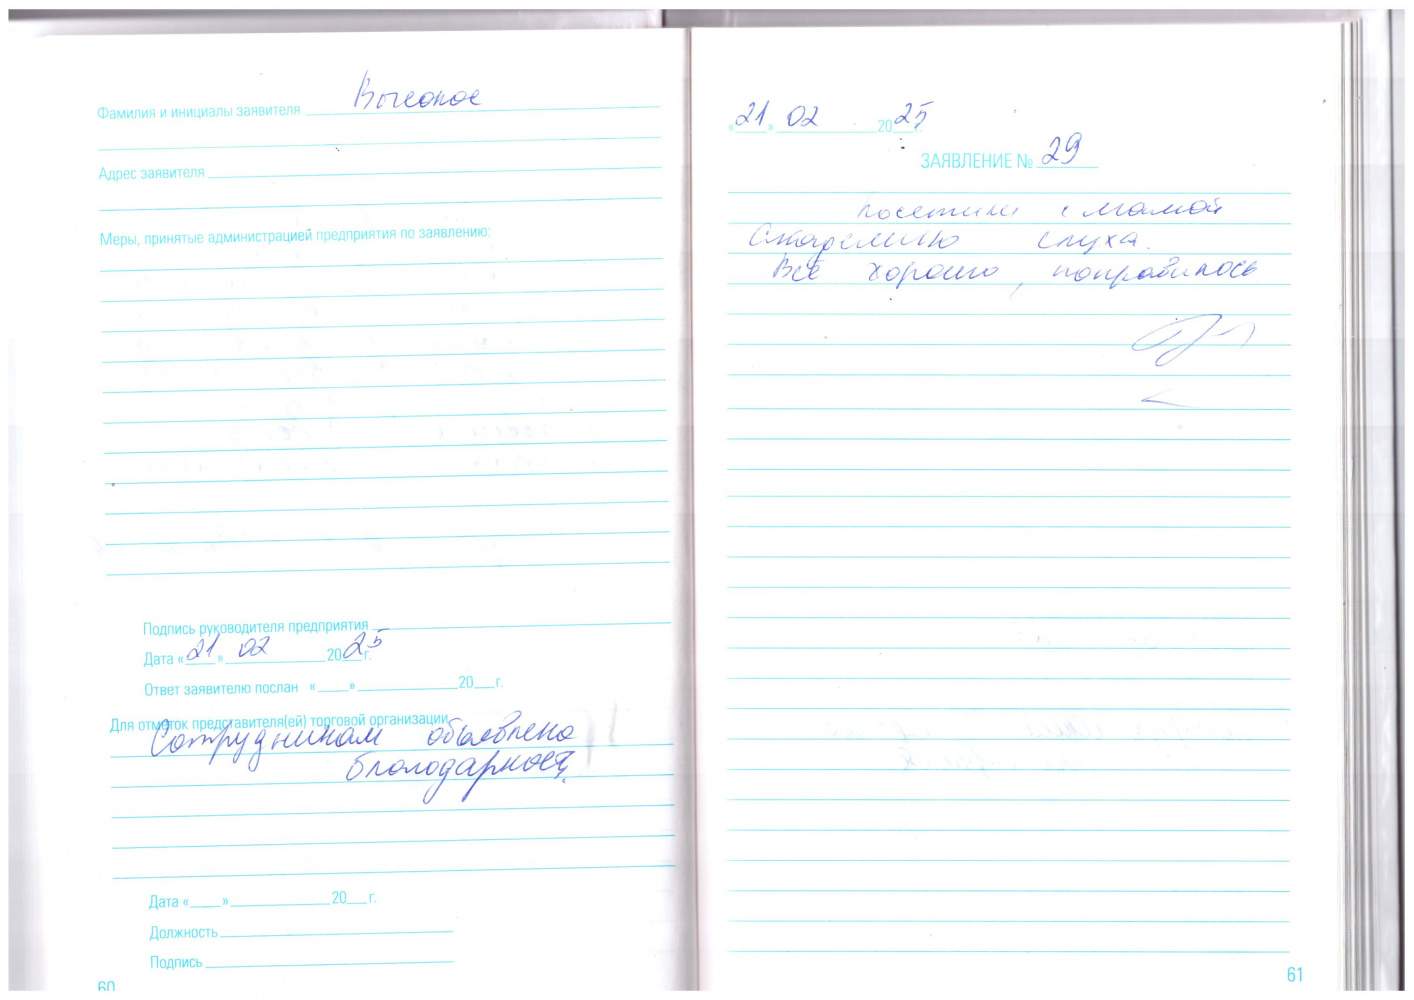 Фамилия и инициалы заявителя
Адрес заявителя
Меры, принятые администрацией предприятия по заявлению:
Подпись руководителя предприятия
Дата «21» 02 2025 г.
Ответ заявителю послан «___» ______ 20__г.
Для отметок представителя(ей) торговой организации
Сотрудникам объявлена
благодарность.
Дата «___» ______ 20__г.
Должность
Подпись
60
«21» 02 2025 г.
ЗАЯВЛЕНИЕ № 29
Посетили с мамой
Академию слуха.
Всё хорошо, понравилось
61